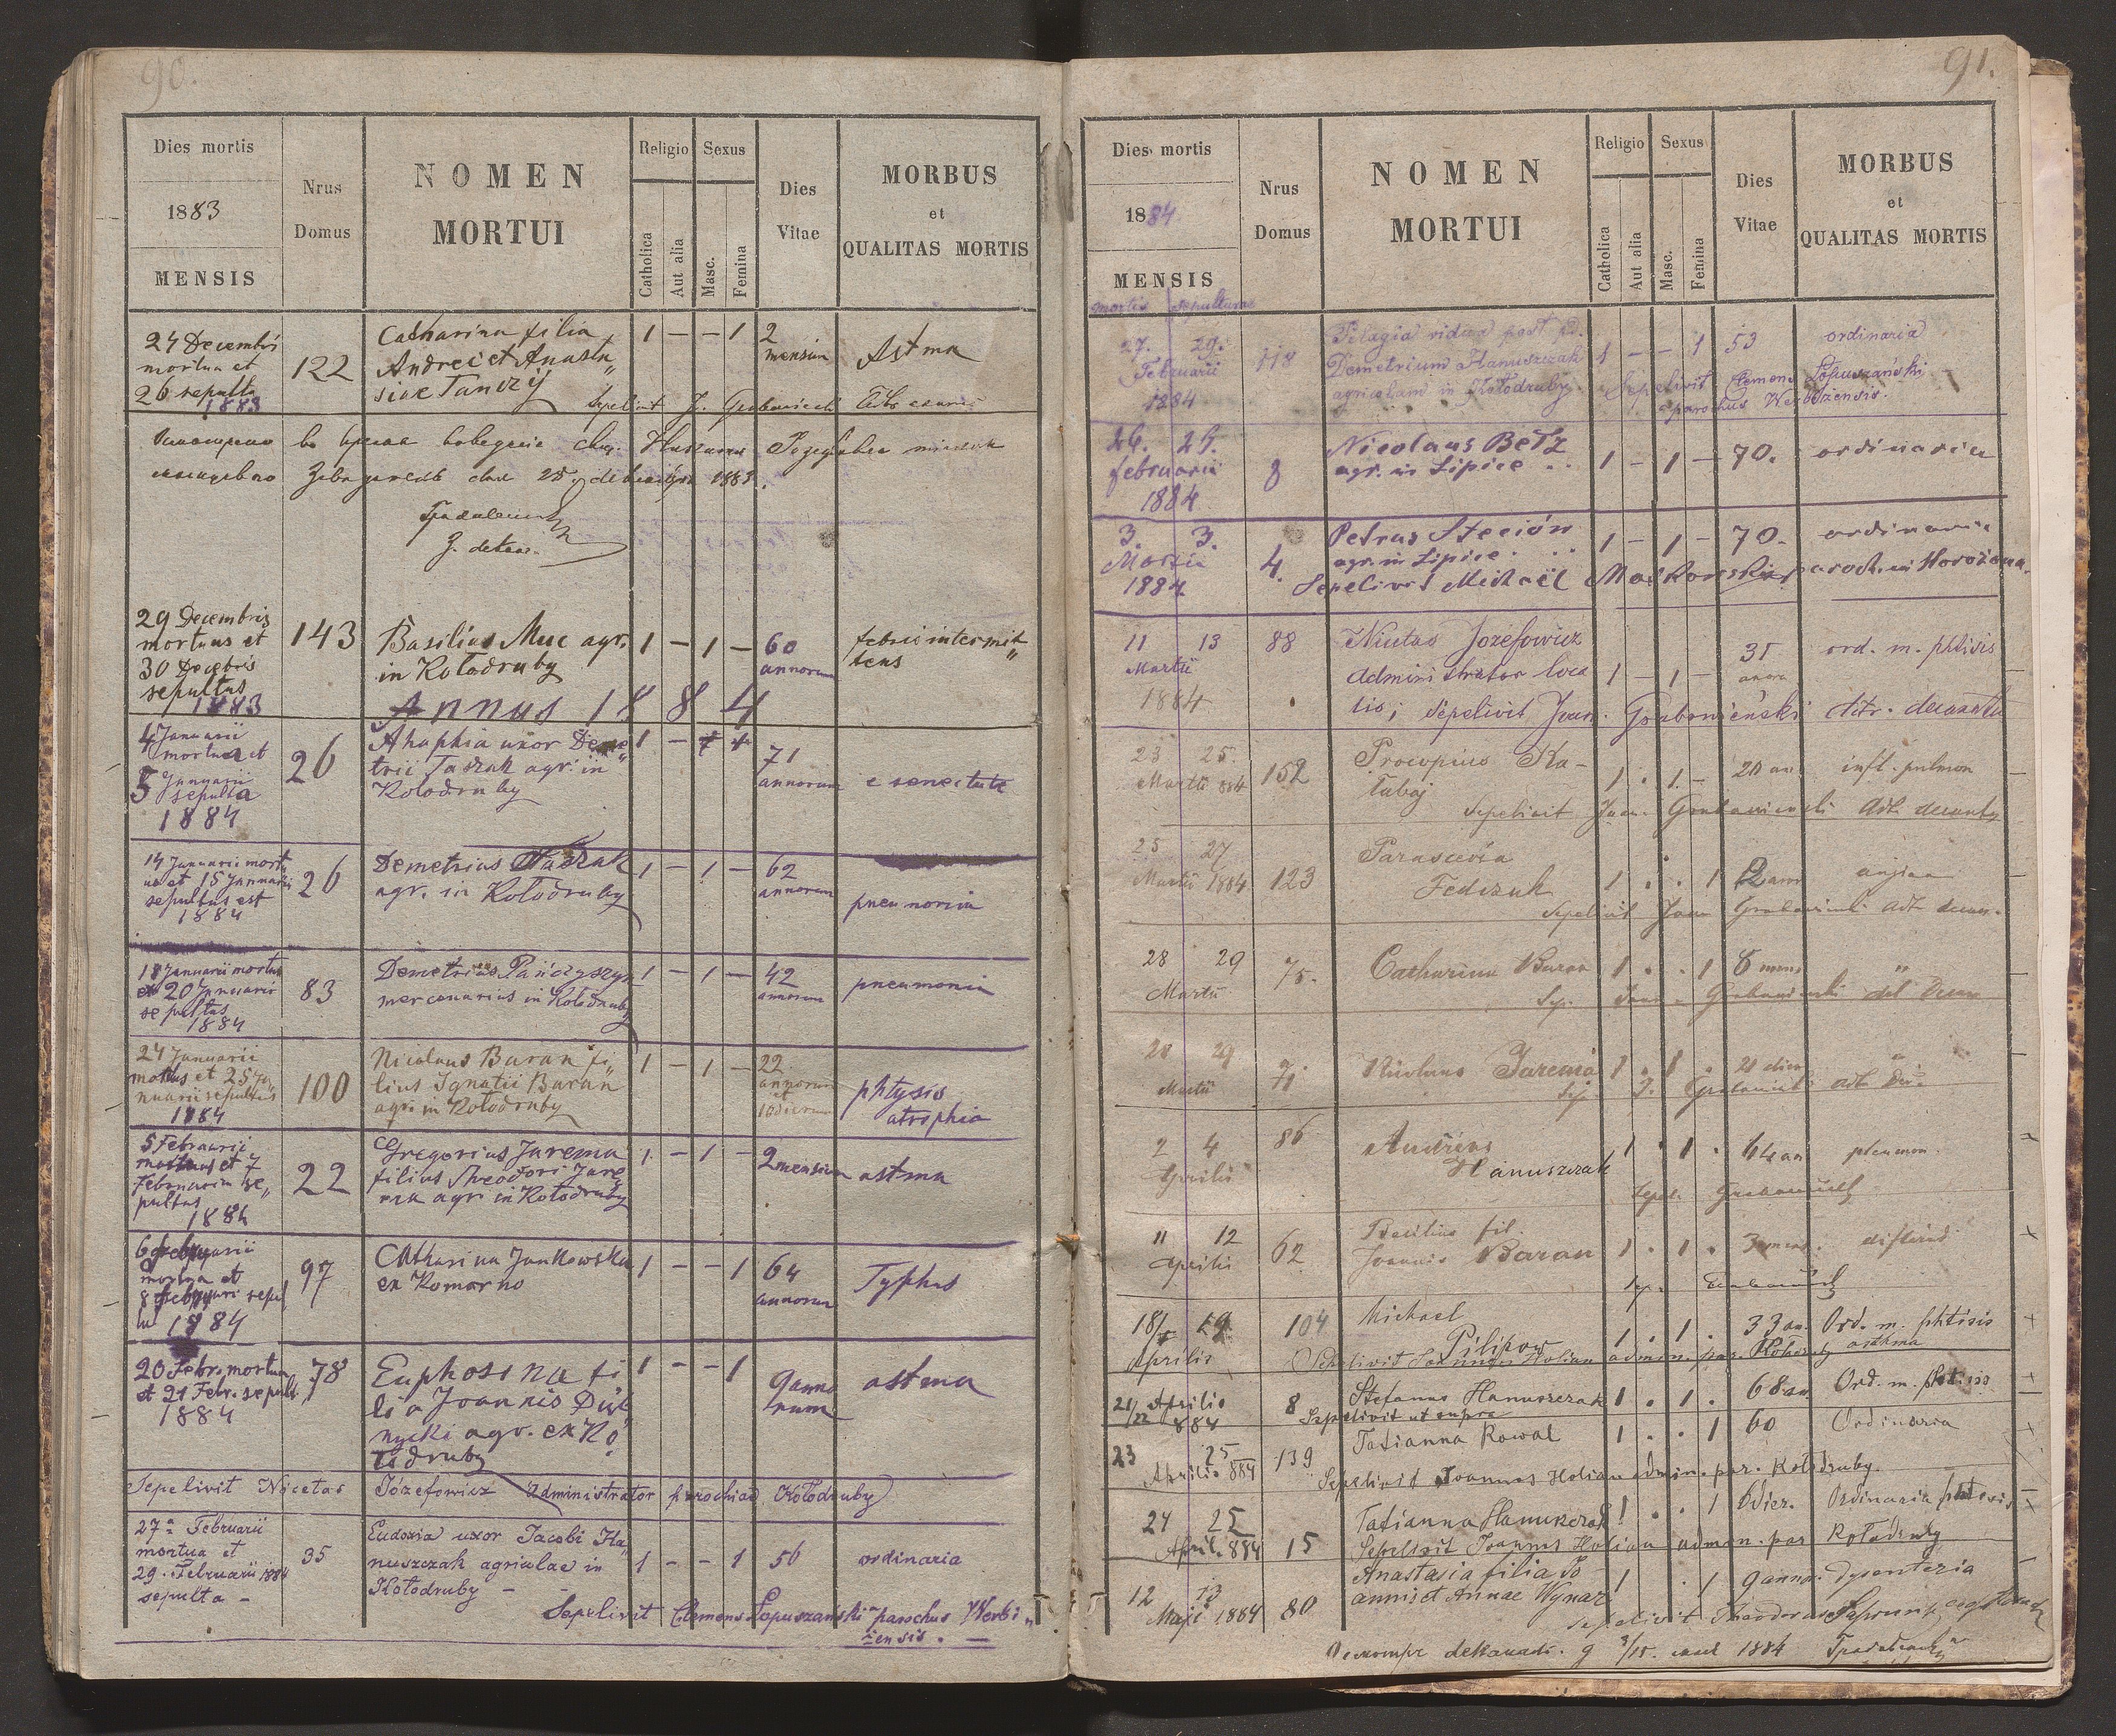 90.
Dies mortis
1883
MENSIS
Nrus
Domus
NOMEN
MORTUI
Religio
Sexus
Catholica
Aut alia
Masc.
Femina
Dies
Vitae
MORBUS
et
QUALITAS MORTIS
24 Decembri
mortua et
26 sepulta
1883
122
Catharina filia
Andrei et Anasta„
siae Tanczij
1 — — 1
2
mensium
Astma
Sepelivit J.
29 Decembris
mortuus et
30 Decebris
sepultus
1883
143
Basilius Muc agr.
in Kołodruby
1 — 1 —
60
annorum
febris intermit„
tens
Annus 1884
4 Januarii
mortua et
5 Januarii
sepulta
1884
26
Ahaphia uxor Deme„
trii Taszak agr. in
Kołodruby
1 —
71
annorum
e senectute
14 Januarii mortu
us et 15 Januarii
sepultus est
1884
26
Demetrius Taszak
agr. in Kołodruby
1 — 1 —
62
annorum
pneumonia
18 Januarii mortus
et 20 Januarii
sepultus
1884
83
Demetrius Pańczyszyn
mercenarius in Kołodruby
1 — 1 —
42
annorum
pneumonia
24 Januarii
motus et 25 Ja„
nuarii sepultus
1884
100
Nicolaus Baran fi„
lius Ignatii Baran
agr. in Kołodruby
1 — 1 —
22
annorum
et
10 dierum
phtysis
atrophia
5 Februarii
mortuus et 7
Februarii se„
pultus
1884
22
Gregorius Jarema
filius Theodori Jare„
ma agr. in Kołodruby
1 — 1 —
2 mensium
astma
6 Februarii
mortua et
8 Februari sepul
ta 1884
97
Catharina Jankowska
ex Komarno
1 — — 1
64
annorum
Typhus
20 Febr. mortua
et 21 Febr. sepult.
1884
78
Euphosina fi
lia Joannis Duł
nycki agr. ex Ko
łodruby
1 — — 1
9 anno
rum
astma
Sepelivit Nicetas Józefowicz Administrator parochiae Kołodruby
27ª Februarii
mortua et
29. Februarii 1884
sepulta —
35
Eudoxia uxor Jacobi Ha„
nuszczak agricolae in
Kołodruby —
1 — — 1
56
ordinaria
Sepelivit Clemens Łopuszański parochus Werbi„
żensis. —
91.
Dies mortis
1884
MENSIS
mortis sepulturae
Nrus
Domus
NOMEN
MORTUI
Religio
Sexus
Catholica
Aut alia
Masc.
Femina
Dies
Vitae
MORBUS
et
QUALITAS MORTIS
27. 29.
Februarii
1884
118
Pelagia vidua post
Demetrium Hanuszczak
agricolam in Kołodruby.
1 — — 1
53
ordinaria
Sepelivit Clemens Łopuszański
parochus Werbiżensis.
26. 28.
februarii
1884
8
Nicolaus Betz
agr. in Lipice . .
1 — 1 —
70.
ordinaria
3. 3.
Martii
1884
4.
Petrus Steciów
agr. in Lipice . . .
1 — 1 —
70.
ordinaria
Sepelivit Michaël paroch. in Horożana.
11 13
Martii
1884
88
Nicetas Józefowicz
Administrator loca
lis;
1 — 1 —
35
annor
ord. m. phtisis
Sepelivit Joan. Grabowieński adtr. decanatus
23 25.
Martii 884
152
Procopius Ka-
łabaj
1 . 1 —
20 an
infl. pulmon
Sepelivit Joan. Grabowieński Adt. decanatus
25 27
Martii 1884
123
Parascevia
Fedczuk
1 . . 1
2 ann
angina
Sepelivit Joan Grabowieński adt. decan.
28 29
Martii
75.
Catharina Baran
1 . . 1
8 mens
„
Sep. Joan Grabowieński adt Decan
28 29
Martii
71
Nicolaus Jarema
1 . 1 .
21 dier
„
Sep. J. Grabowieński adt Dec.
2 4
Aprilis
86
Andreas
Hanuszczak
1 . 1 .
64 an
pneumon.
Sepel. Grabowieński
11 12
Aprilis
62
Basilius fil.
Joannis Baran
1 . 1 .
3 mens.
Sep. Grabowieński
18/ 19
Aprilis
104
Michael
Pilipow
1 . 1 .
33 an.
Ord. m. phtisis
asthma
Sepelivit Joannes Holian admin. par. Kołodruby
21/22 Aprilis
884
8
Stefanus Hanuszczak
1 . 1 .
68 an
Ord. m. phtisis
Sepelivit ut supra
23 25
Aprilis 884
139
Tatianna Kowal
1 . . 1
60
Ordinaria
Sepelivit Joannes Holian admin. par. Kołodruby.
24 25
April. 884
15
Tatianna Hanuszczak
1 . . 1
6 dier.
Ordinaria phtisis
Sepelivit Joannes Holian admin. par Kołodruby
12 13
Maji 1884
80
Anastasia filia Jo
annis et Annae Wynar
1 . 1
9 annor.
Dysenteria
Sepelivit Theodorus
1884